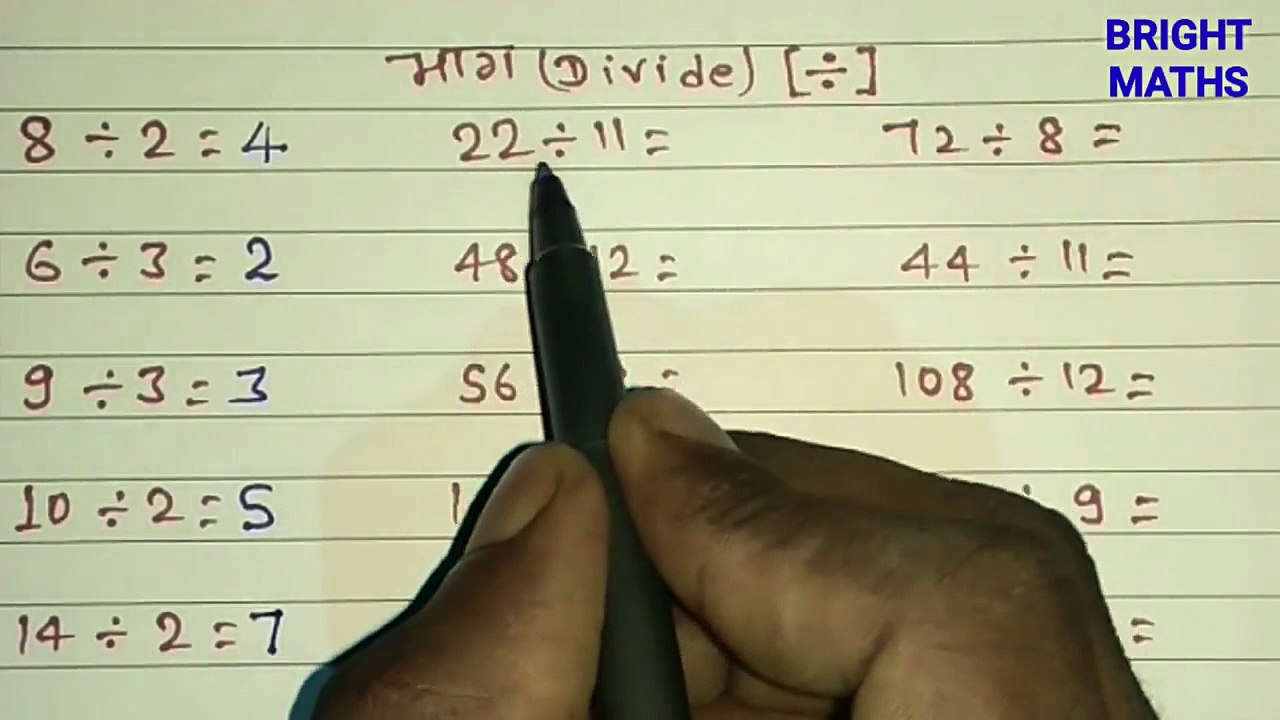 BRIGHT
MATHS
भाग (Divide) [÷]
8 ÷ 2 = 4
22 ÷ 11 =
72 ÷ 8 =
6 ÷ 3 = 2
48 12 =
44 ÷ 11 =
9 ÷ 3 = 3
56 =
108 ÷ 12 =
10 ÷ 2 = 5
1
÷ 9 =
14 ÷ 2 = 7
=